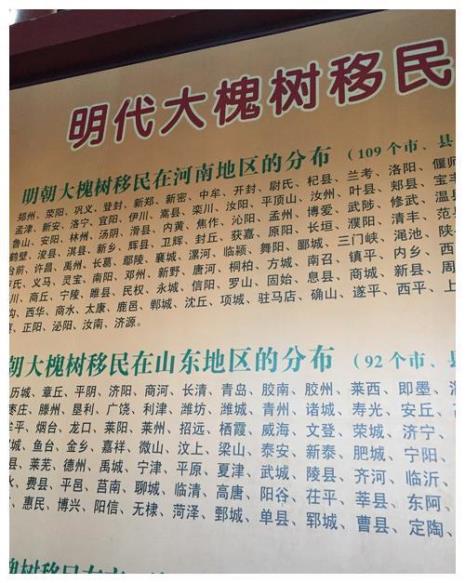 明代大槐树移民
明朝大槐树移民在河南地区的分布（109个市、县
郑州、荥阳、巩义、登封、新郑、新密、中牟、开封、尉氏、杞县、兰考、洛阳、偃师
孟津、新安、洛宁、宜阳、伊川、嵩县、栾川、汝阳、平顶山、汝州、叶县、郏县、宝丰
鲁山、安阳、林州、汤阴、滑县、内黄、焦作、沁阳、孟州、博爱、武陟、修武、温县
鹤壁、浚县、淇县、新乡、辉县、卫辉、封丘、获嘉、原阳、长垣、濮阳、清丰、范县
台前、许昌、禹州、长葛、鄢陵、襄城、漯河、临颍、舞阳、郾城、三门峡、渑池、陕县
氏、义马、灵宝、南阳、邓州、新野、唐河、桐柏、方城、南召、镇平、内乡、西
川、商丘、宁陵、睢县、民权、永城、信阳、罗山、固始、息县、商城、新县、周
沟、西华、商水、太康、鹿邑、郸城、沈丘、项城、驻马店、确山、遂平、西平、上
、正阳、泌阳、汝南、济源。
朝大槐树移民在山东地区的分布（92个市、县
历城、章丘、平阴、济阳、商河、长清、青岛、胶南、胶州、莱西、即墨、
枣庄、滕州、垦利、广饶、利津、潍坊、潍城、青州、诸城、寿光、安丘、
牟平、烟台、龙口、莱阳、莱州、招远、栖霞、威海、文登、荣城、济宁、
城、鱼台、金乡、嘉祥、微山、汶上、梁山、泰安、新泰、肥城、宁阳、
县、莱芜、德州、禹城、宁津、平原、夏津、武城、陵县、齐河、临沂、
水、费县、平邑、莒南、聊城、临清、高唐、阳谷、茌平、莘县、东阿、
、惠民、博兴、阳信、无棣、菏泽、鄄城、单县、郓城、曹县、定陶、